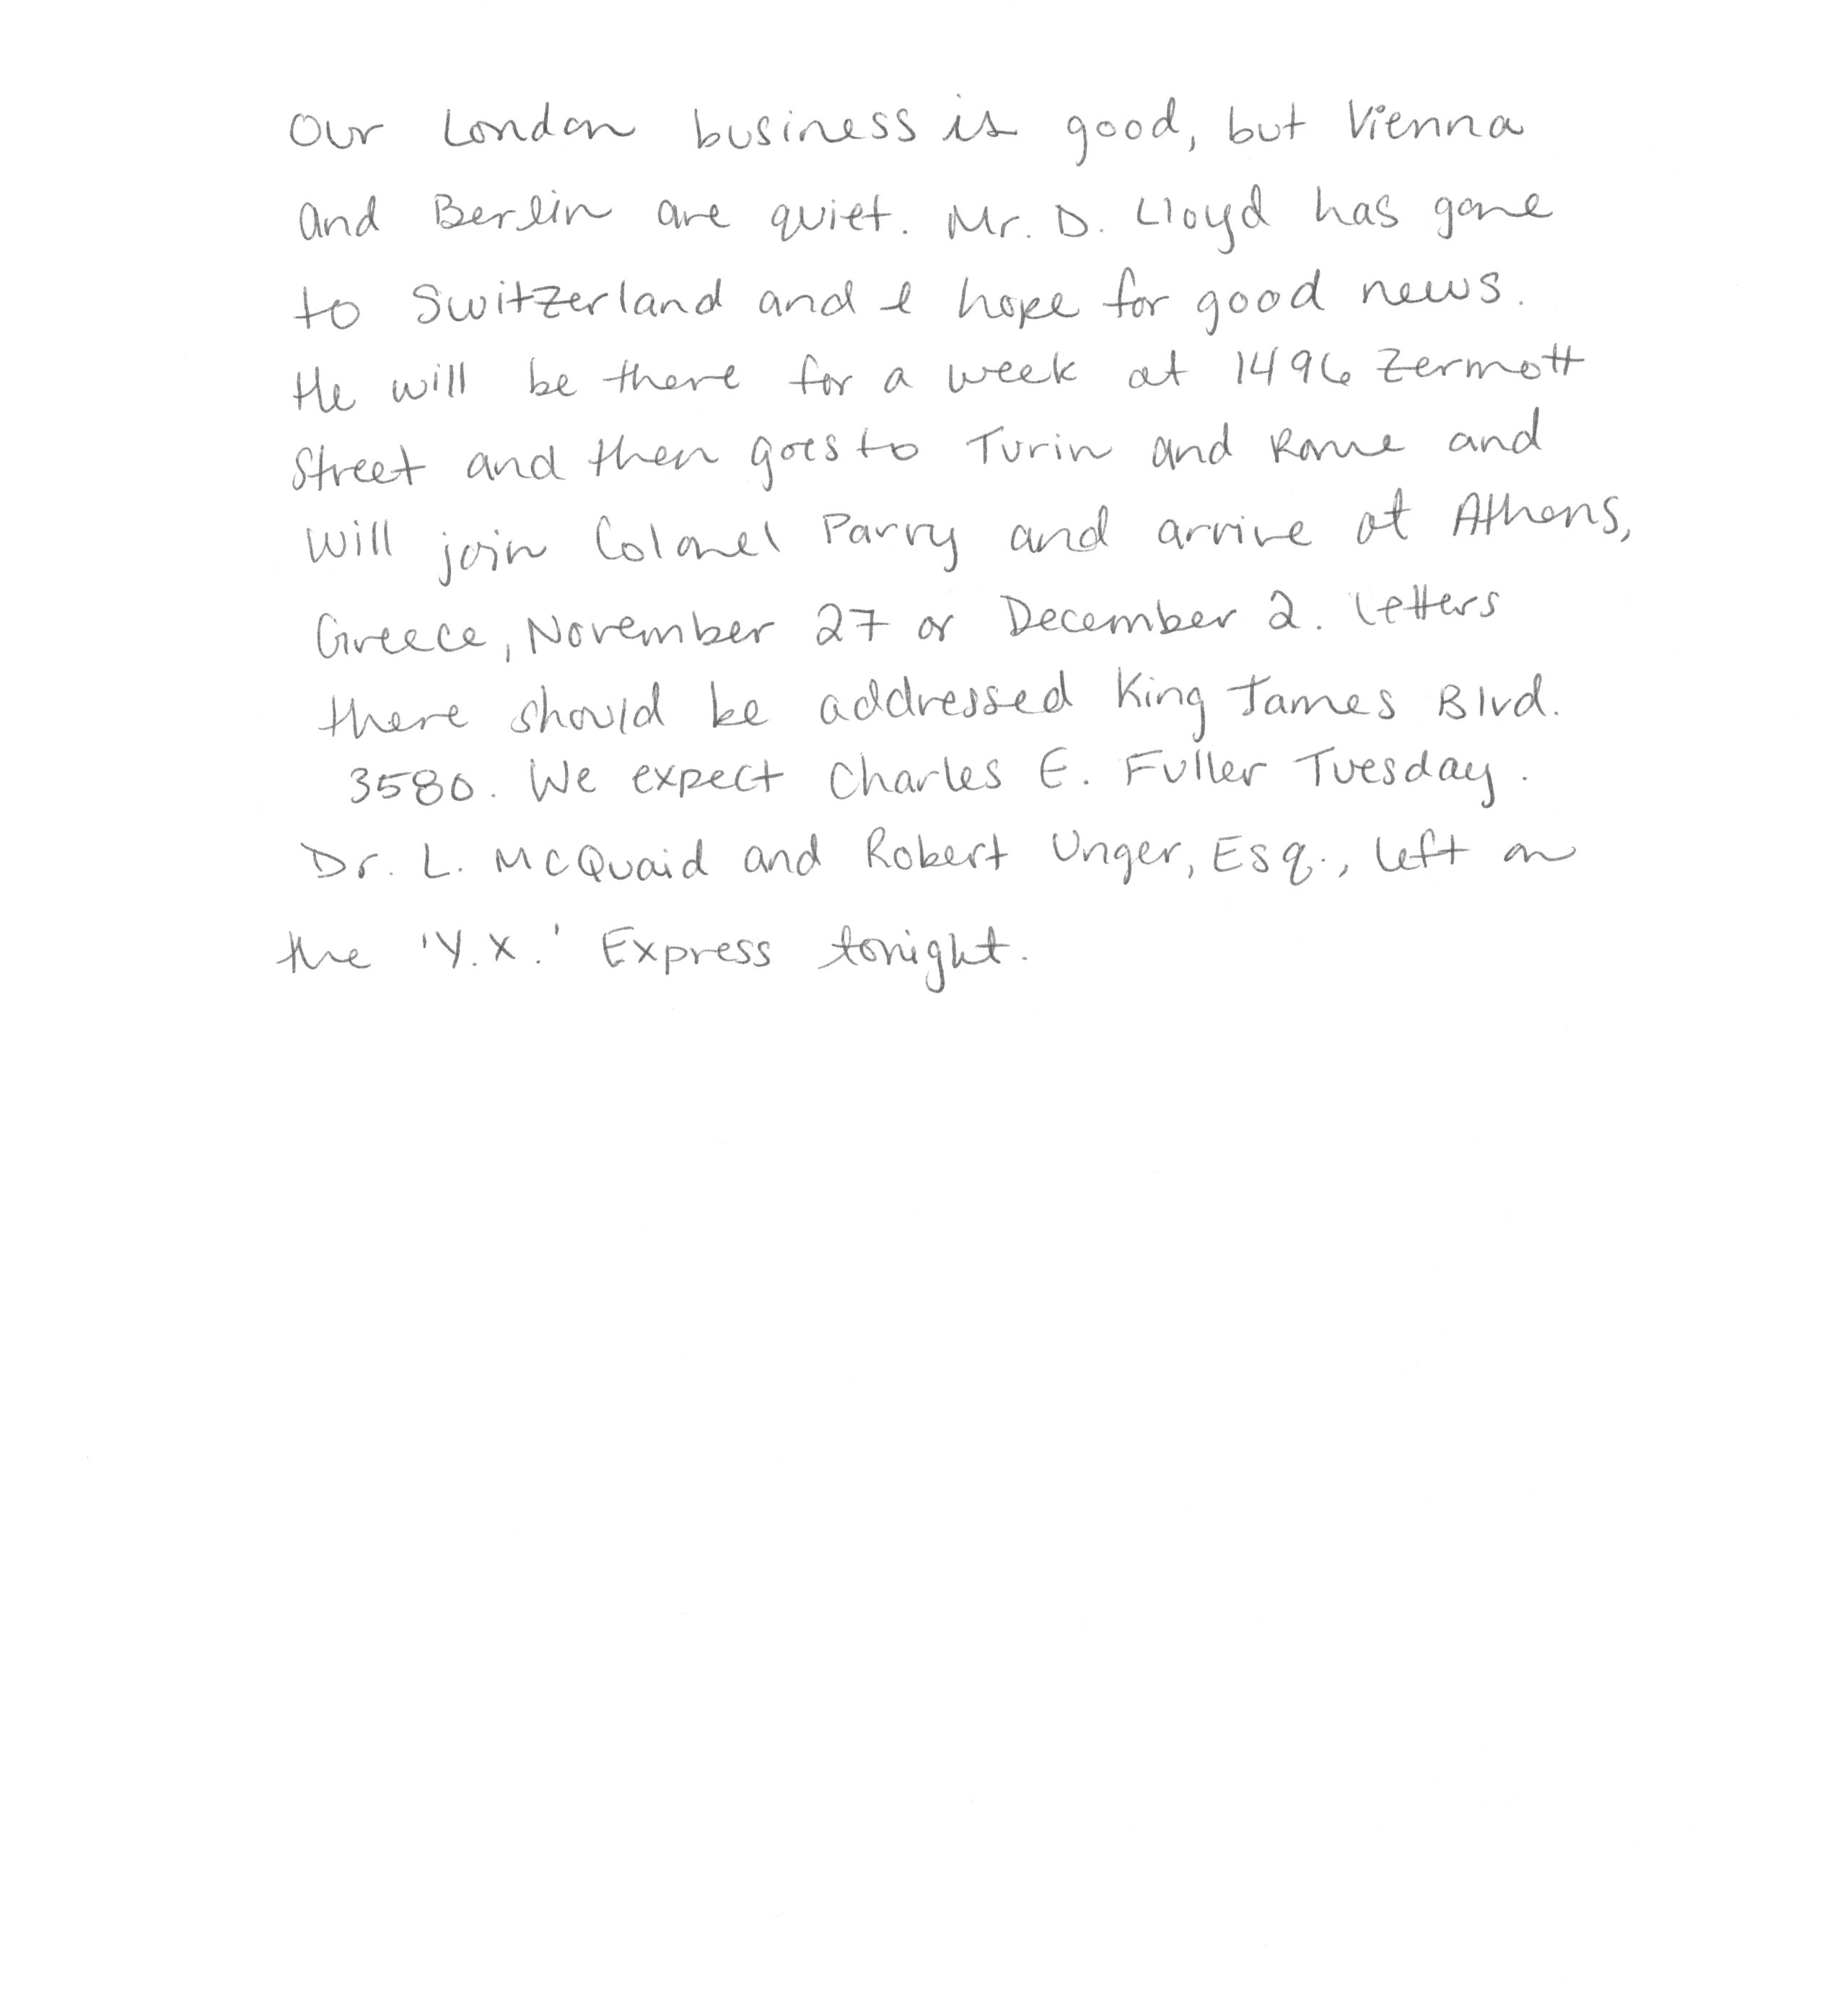 Our London business is good, but Vienna
and Berlin are quiet. Mr. D. Lloyd has gone
to Switzerland and I hope for good news.
He will be there for a week at 1496 Zermott
Street and then goes to Turin and Rome and
will join Colonel Parry and arrive at Athens,
Greece, November 27 or December 2. Letters
there should be addressed King James Blvd.
3580. We expect Charles E. Fuller Tuesday.
Dr. L. McQuaid and Robert Unger, Esq., left on
the 'Y.X.' Express tonight.